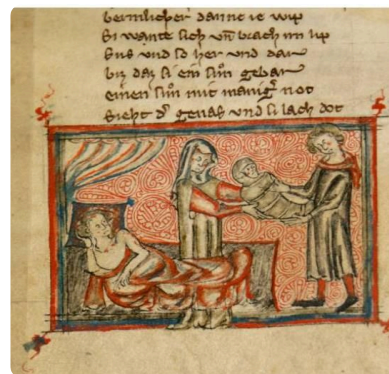 bermlicher danne ie wip
Si wante sich vn̄ brach irn lip
Sus vnd so her vnd dar
biz daz si ein sun gebar
einen sun mit manig᾽ not
Sieht d᾽ genas vnd si lach dot